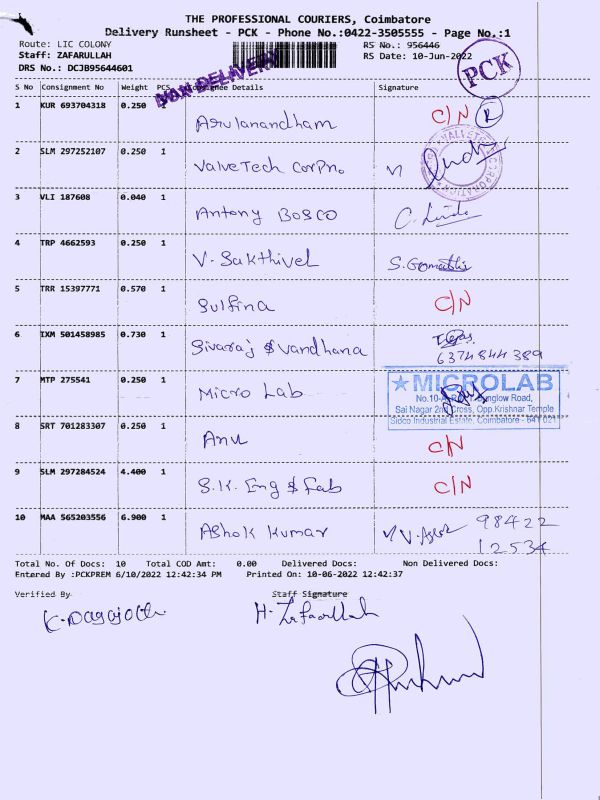 THE PROFESSIONAL COURIERS, Coimbatore
Delivery Runsheet - PCK - Phone No.:0422-3505555 - Page No.:1
Route: LIC COLONY
RS No.: 956446
Staff: ZAFARULLAH
RS Date: 10-Jun-2022
DRS No.: DCJB95644601
NON DELIVERY
PCK
S No Consignment No Weight PCS Consignee Details Signature
1 KUR 693704318 0.250 Arulanandham C/N R
2 SLM 297252107 0.250 1 ValveTech Corpn.
3 VLI 187608 0.040 1 Antony Bosco
4 TRP 4662593 0.250 1 V. Sakthivel
5 TRR 15397771 0.570 1 Sulfina C/N
6 IXM 501458985 0.730 1 Sivaraj & Vandhana
6374844389
7 MTP 275541 0.250 1 Micro Lab
★ MICROLAB
Sai Nagar 2nd Cross, Opp.Krishnar Temple
Sidco Industrial Estate, Coimbatore - 641 021
8 SRT 701283307 0.250 1 Anu C/N
9 SLM 297284524 4.400 1 S.K. Eng & Fab C/N
10 MAA 565203556 6.900 1 Ashok Kumar 98422
12534
Total No. Of Docs: 10 Total COD Amt: 0.00 Delivered Docs: Non Delivered Docs:
Entered By :PCKPREM 6/10/2022 12:42:34 PM Printed On: 10-06-2022 12:42:37
Verified By Staff Signature
H. Zafarullah